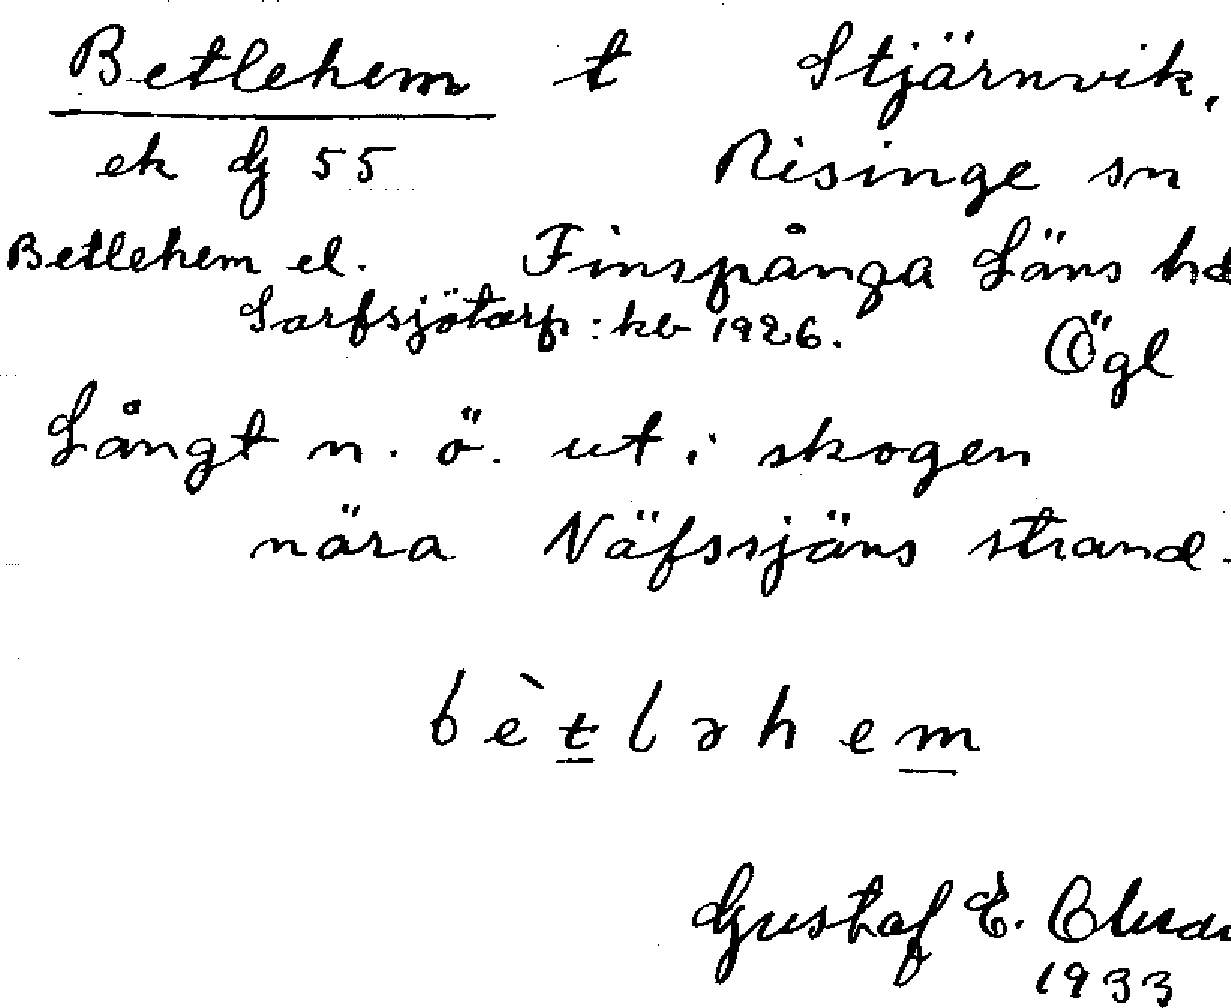 Betlehem t Stjärnvik,
ek dg 55 Risinge sn
Betlehem el. Finspånga Läns hd
Sarfsjötorp: kb 1926. Ögl
Långt n. ö. ut i skogen
nära Näfssjäns strand.
bètləhem
Gustaf E.
1933